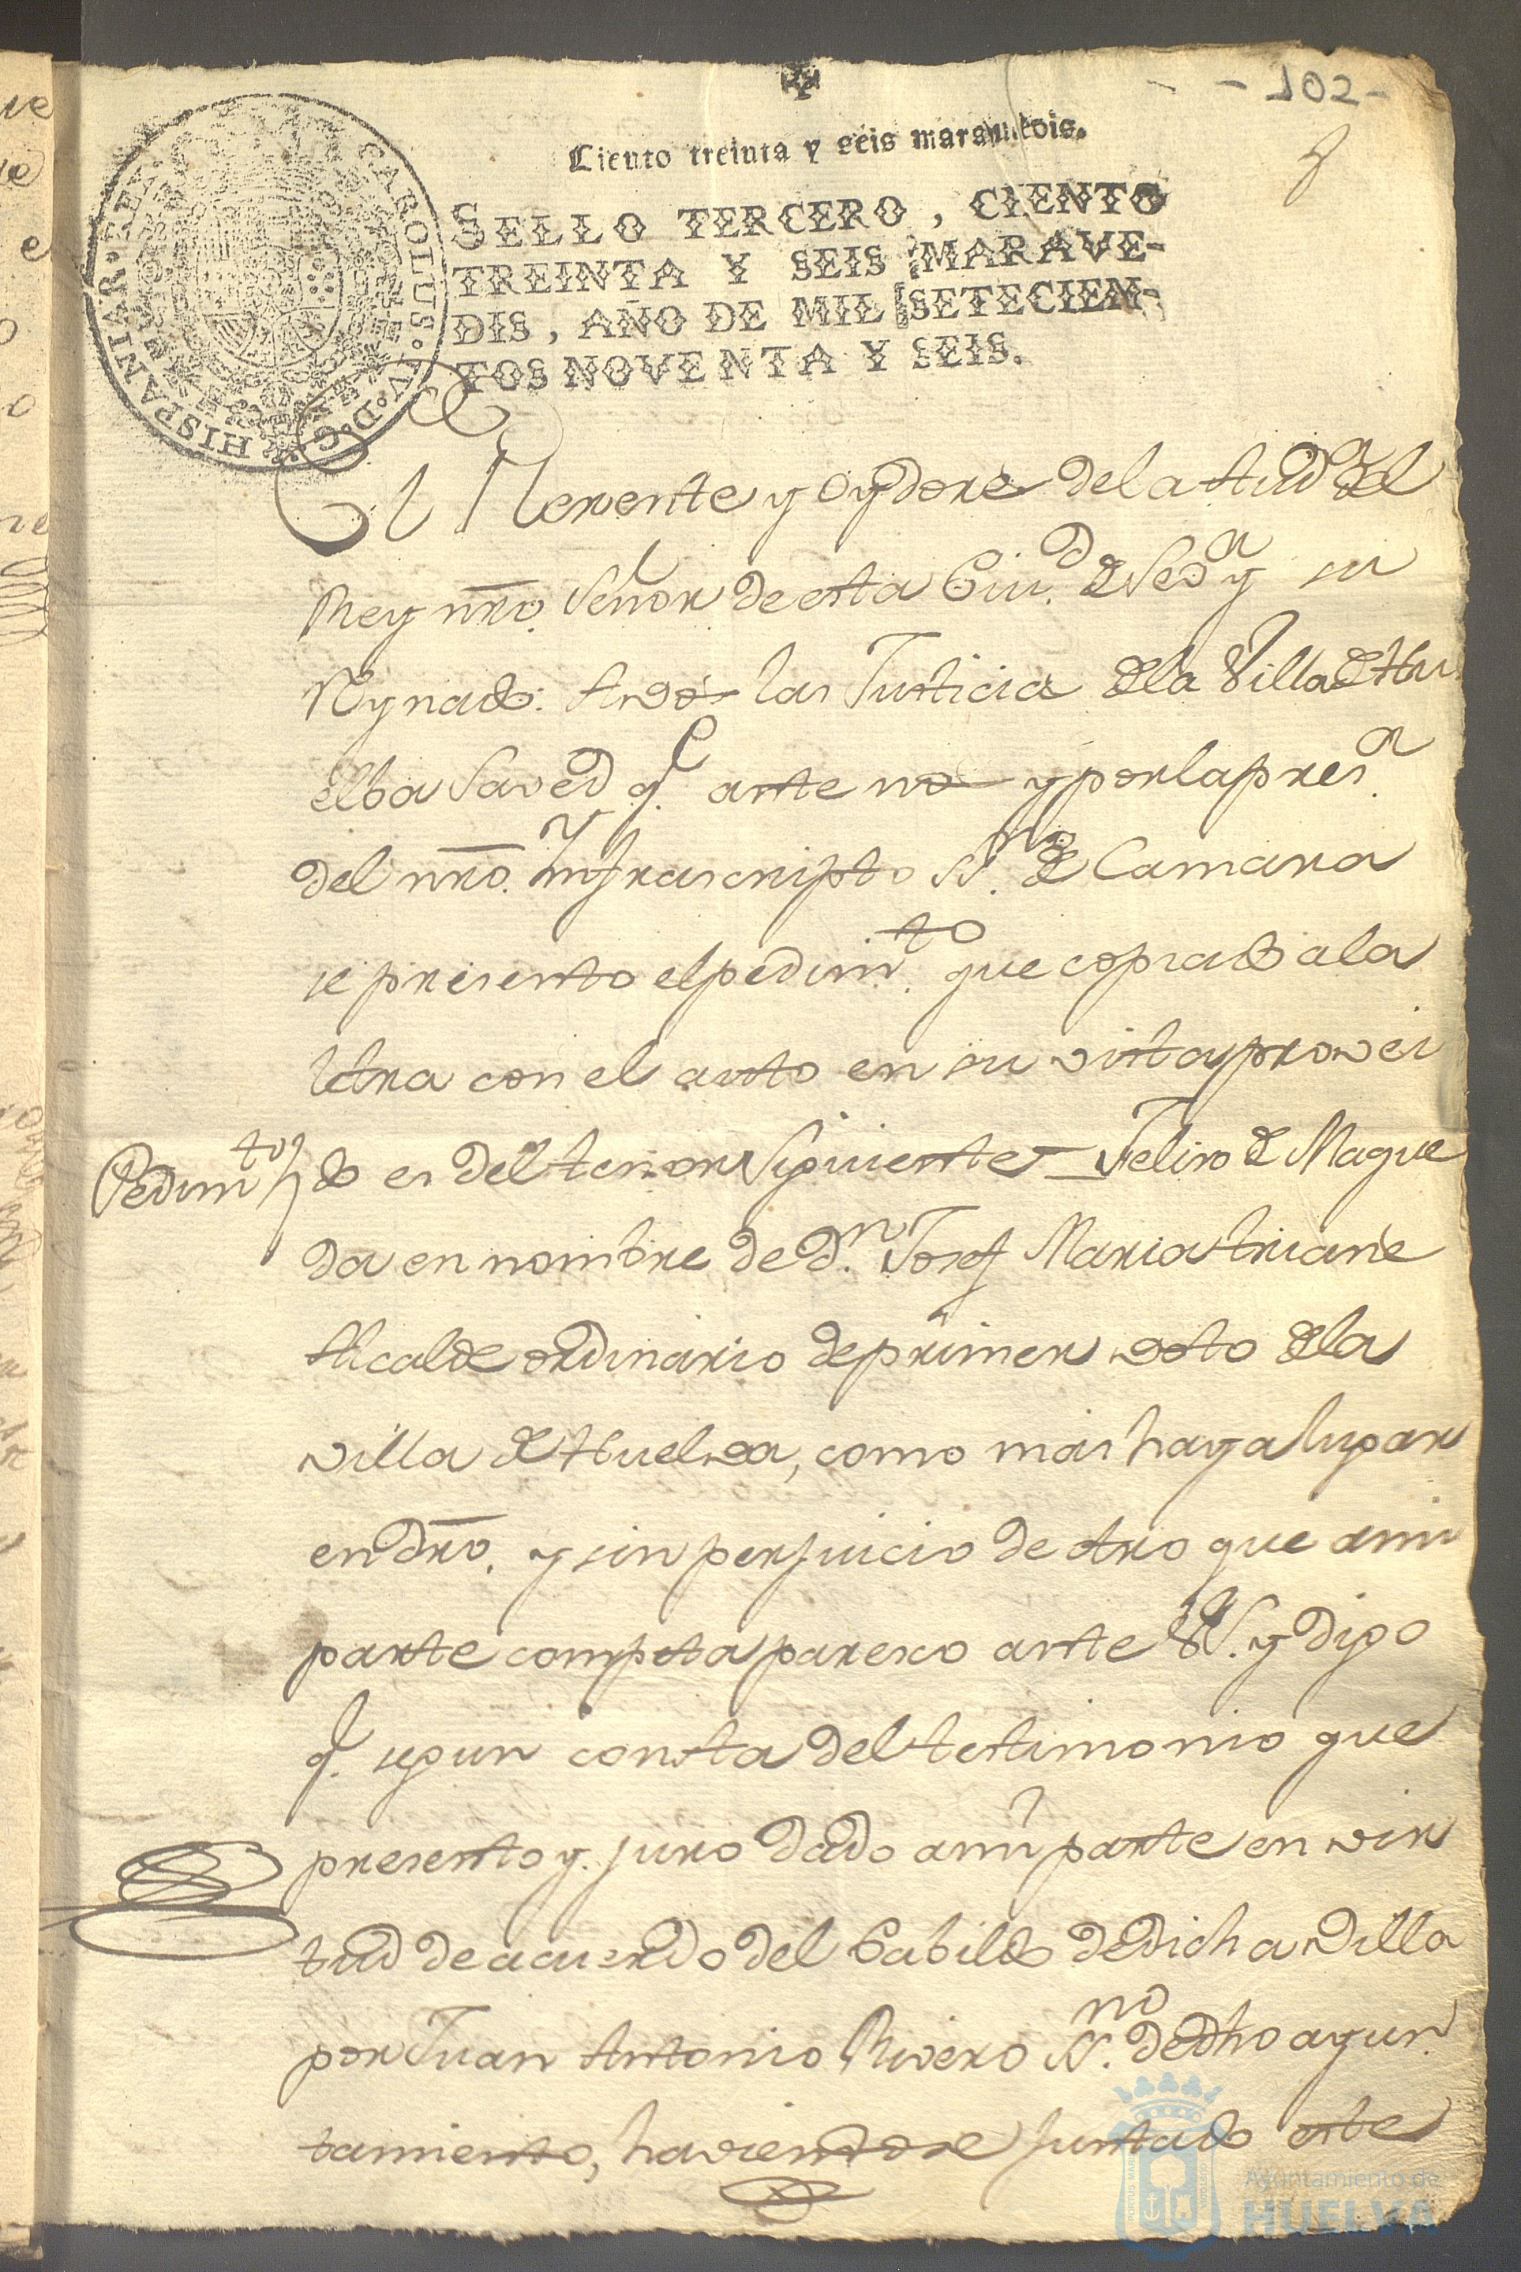 - 102 -
Ciento treinta y seis maravedis.
SELLO TERCERO, CIENTO
TREINTA Y SEIS MARAVE-
DIS, AÑO DE MIL SETECIEN-
TOS NOVENTA Y SEIS.
CAROLUS · IV · D · G · HISPANIAR · REX ·
El Rexente y Oydores de la Aud.a del
Rey nro. Señor de esta Ciu.d de Sev.a y su
Reynado: A vos las Justicias de la Villa de Hu
elba Saved q.e ante nos y por la pres.a
del nro. Infrascripto SS.no de Camara
se presento el pedim.to que copiado ala
letra con el auto en su vista provei
Pedim.to do es del tenor Siguiente = Felix de Maque
da en nombre de D.n Josef Maria Triane
Alcalde ordinario de primer voto de la
villa de Huelva, como mas haya lugar
en dro. y sin perjuicio de otro que a mi
parte competa paresco ante V.S. y digo
q.e segun consta del testimonio que
presento y juro dado a mi parte en vir
tud de acuerdo del Cabildo de dicha Villa
por Juan Antonio Rivero SS.no de dho ayun
tamiento, haviendose juntado este
Ayuntamiento de
HUELVA